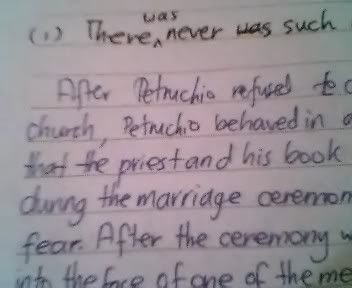 (1) There was never was such
After Petruchio refused to c
church, Petruchio behaved in a
that the priest and his book
during the marridge ceremon
fear. After the ceremony w
into the face of one of the me